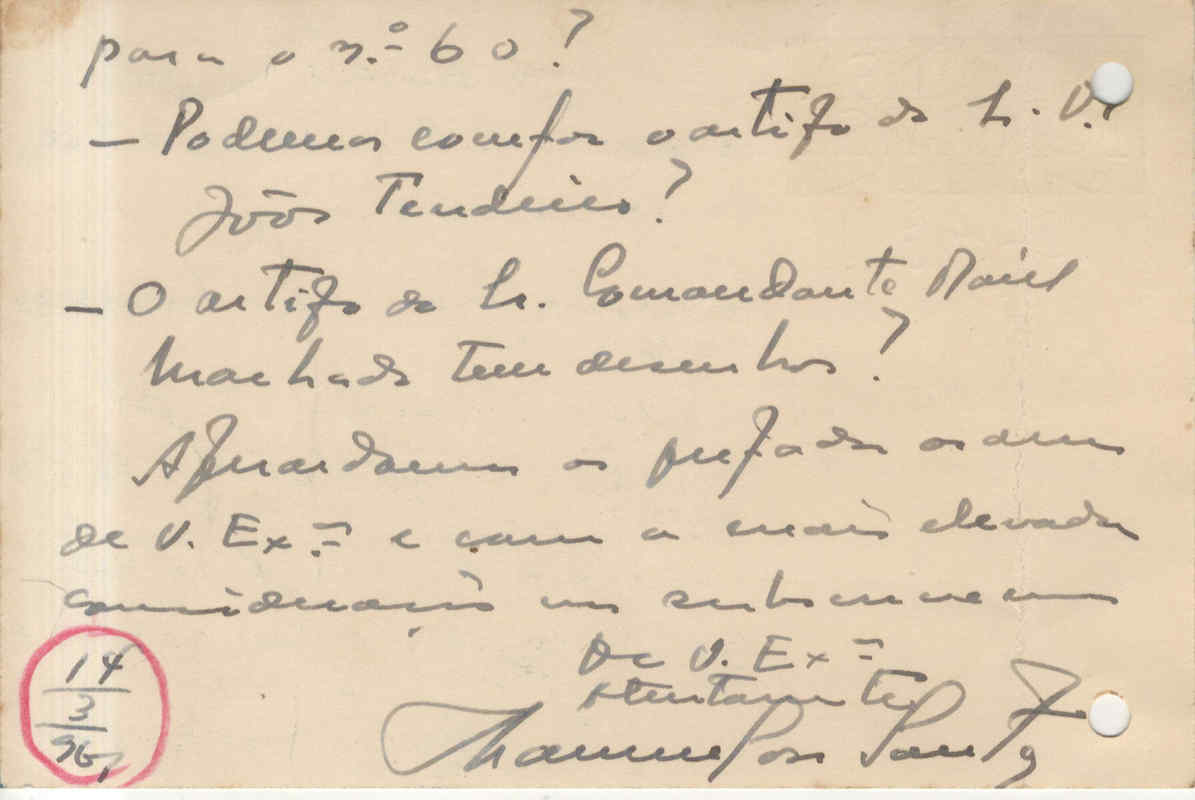 para o n.º 60?
— Podemos compor o artigo do Sr. D.r
João Tendeiro?
— O artigo do Sr. Comandante
Machado tem desenhos?
Aguardamos as prezadas ordens
de V. Ex.ª e com a mais elevada
consideração nos subscrevemos
De V. Ex.ª
Atentamente
14
3